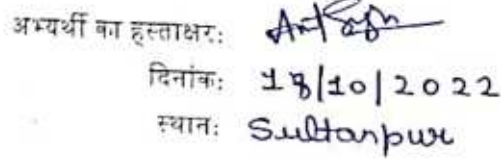 अभ्यर्थी का हस्ताक्षर:
दिनांक: 18/10/2022
स्थान: Sultanpur